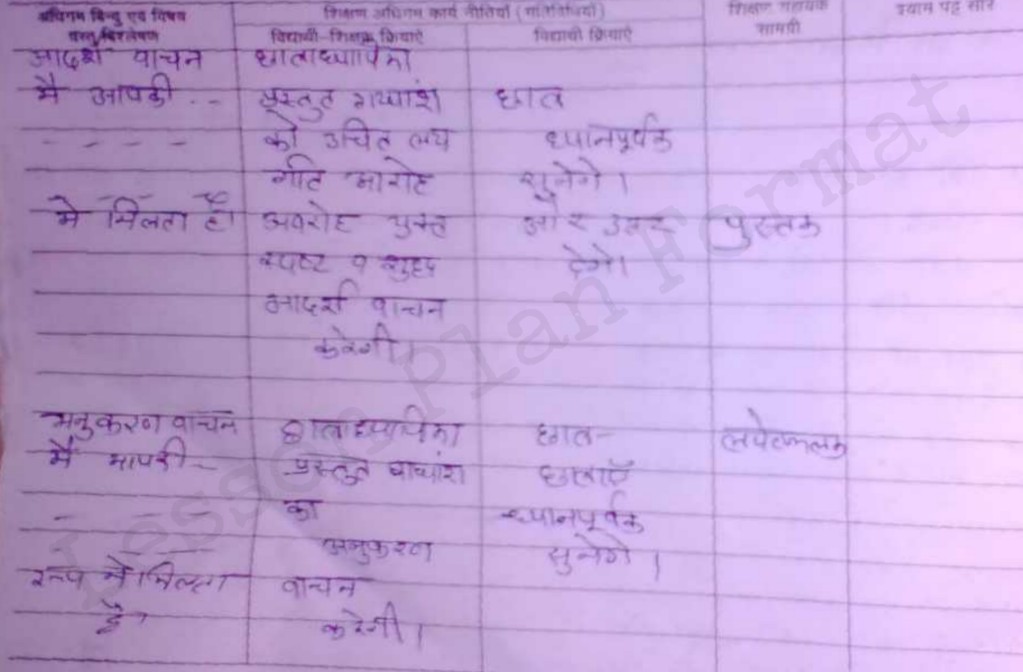 अधिगम बिन्दु एवं विषय शिक्षण अधिगम कार्य नीतियाँ (गतिविधियाँ) शिक्षण सहायक श्याम पट्ट सार
वस्तु विश्लेषण विद्यार्थी-शिक्षक क्रियाएँ विद्यार्थी क्रियाएँ सामग्री
आदर्श वाचन छात्राध्यापिका
मैं आपकी -- प्रस्तुत गद्यांश छात्र
- - - - को उचित लय ध्यानपूर्वक
गति आरोह सुनेगे।
मे मिलता है। अवरोह युक्त और उत्तर पुस्तक
स्पष्ट व शुद्ध देगे।
आदर्श वाचन
करेगी।
अनुकरण वाचन छात्राध्यापिका छात्र- लपेटफलक
मैं आपकी -- प्रस्तुत गद्यांश छात्राएँ
- - - - का ध्यानपूर्वक
अनुकरण सुनेगे।
रूप मे मिलता वाचन
है करेगी।
Lesson Plan Format